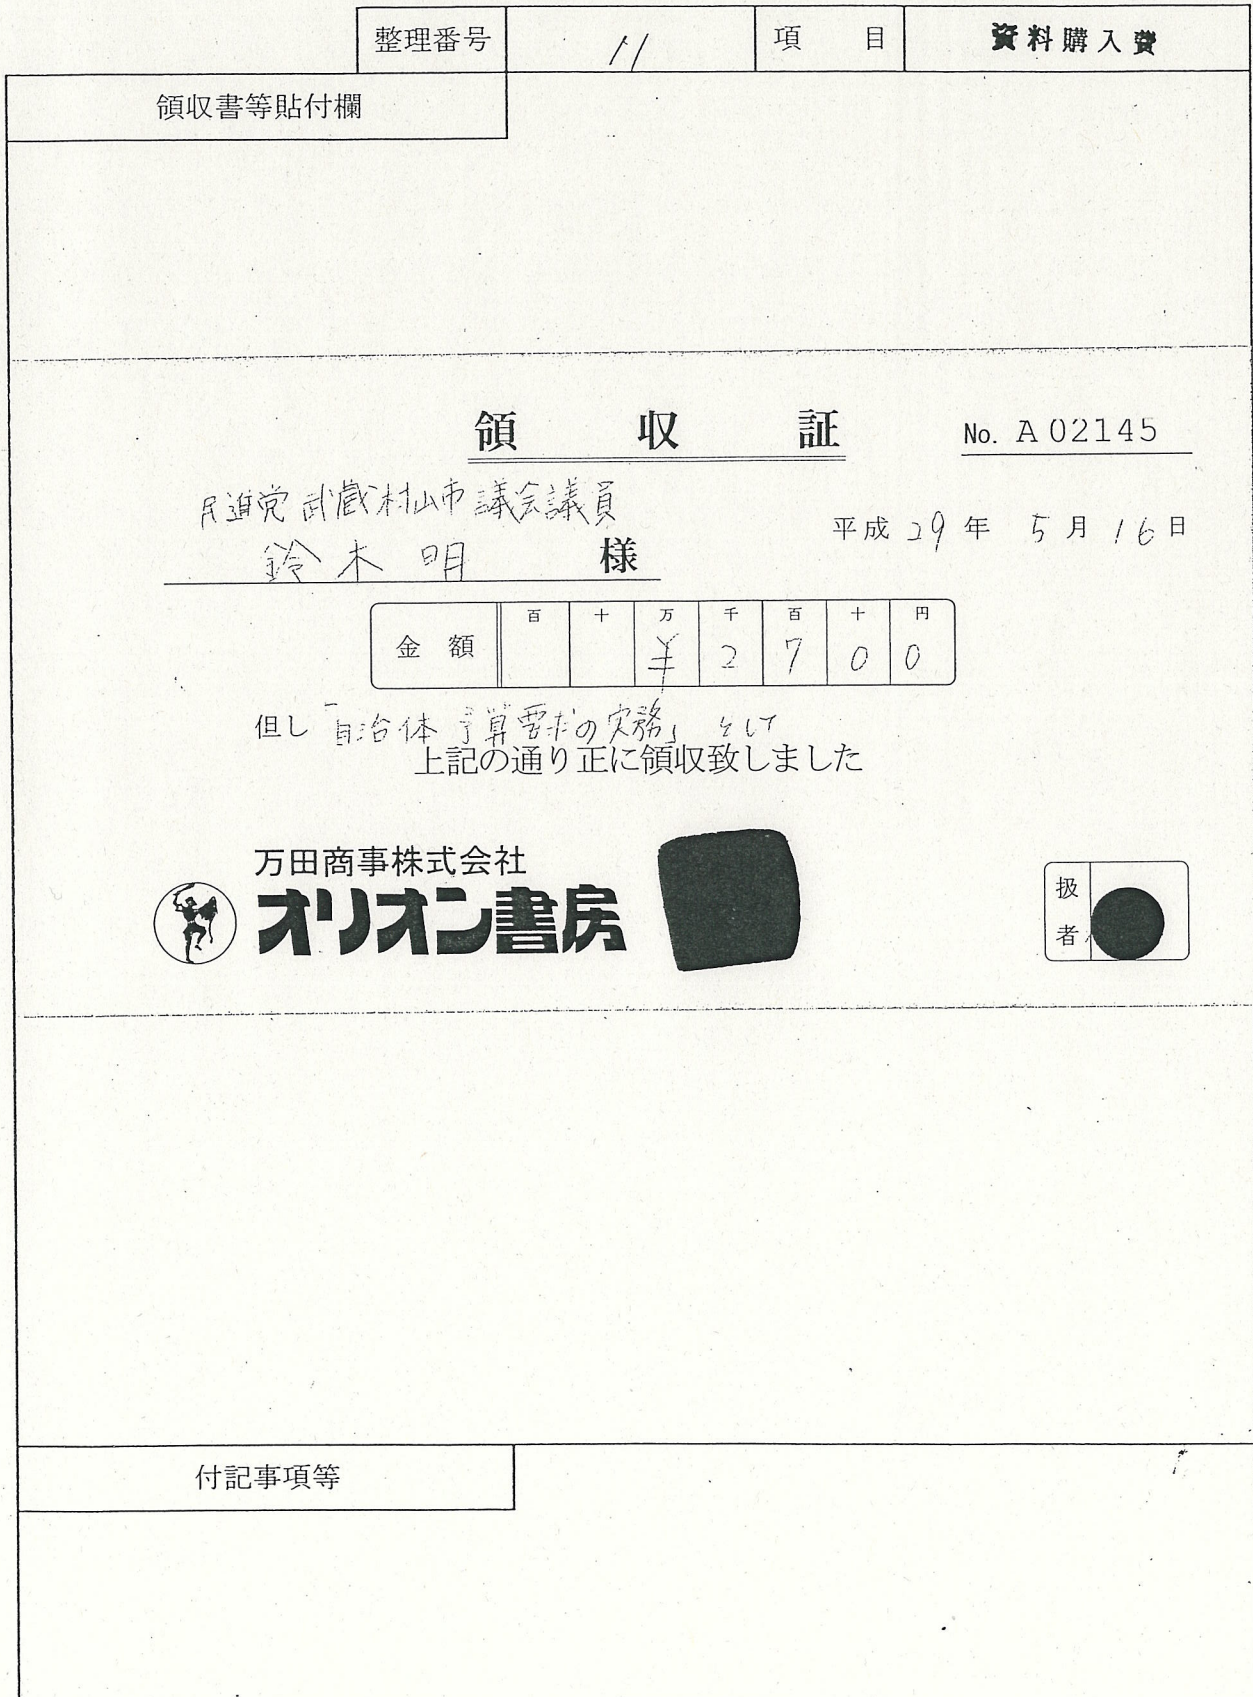 整理番号 11 項目 資料購入費
領収書等貼付欄
領収証 No. A02145
民進党武蔵村山市議会議員
平成29年5月16日
鈴木明 様
百 十 万 千 百 十 円
金額 ¥2700
但し「自治体予算要求の実務」として
上記の通り正に領収致しました
万田商事株式会社
オリオン書房
扱者
付記事項等